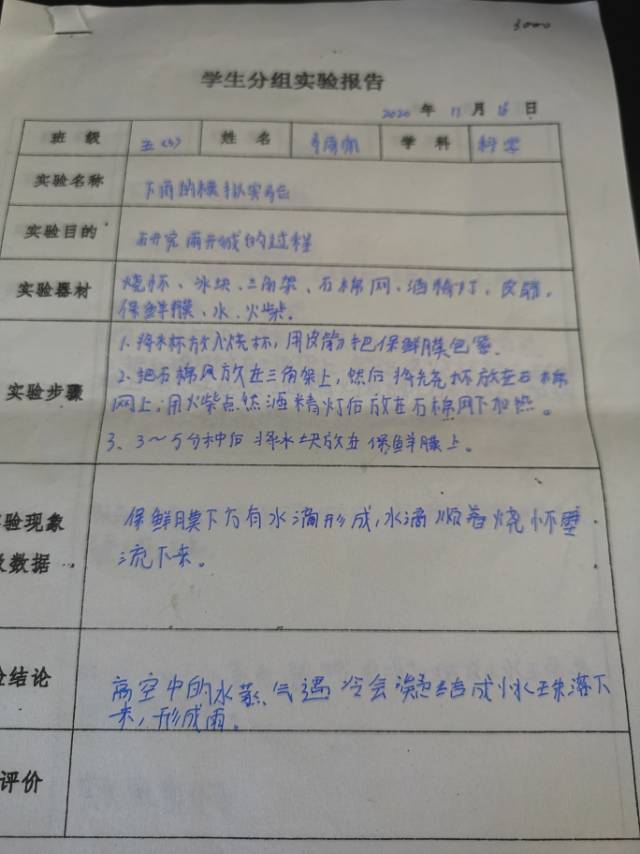 3000
学生分组实验报告
2020 年 11 月 16 日
班 级 五(3) 姓 名 学 科 科学
实验名称 下雨的模拟实验
实验目的 研究雨形成的过程
实验器材 烧杯、冰块、三角架、石棉网、酒精灯、皮筋、
保鲜膜、水、火柴。
1. 将水杯放入烧杯,用皮筋把保鲜膜包紧。
实验步骤 2. 把石棉网放在三角架上,然后将烧杯放在石棉
网上,用火柴点燃酒精灯后放在石棉网下加热。
3、3~5分钟后将冰块放在保鲜膜上。
验现象 保鲜膜下方有水滴形成,水滴顺着烧杯壁
数据 流下来。
结论 高空中的水蒸气遇冷会凝结成小水珠落下
来,形成雨。
评价